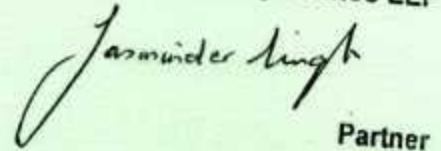 LLP
Jasminder Singh
Partner